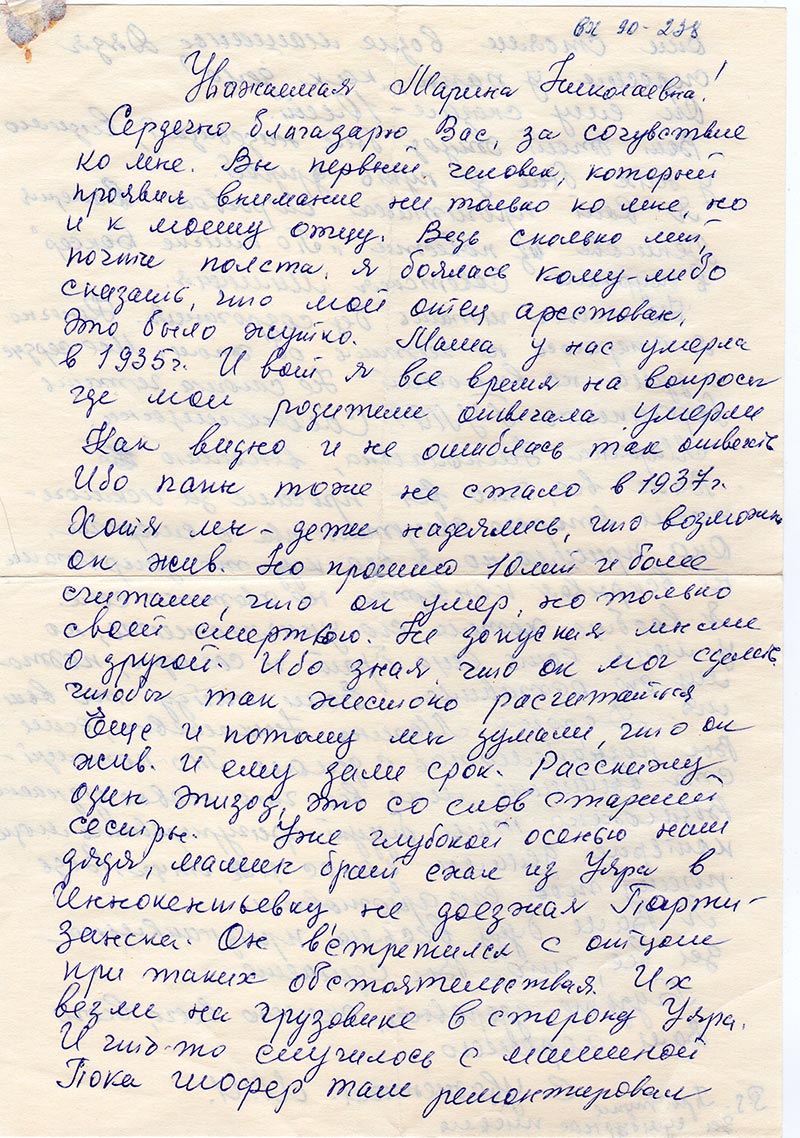 вх 90-238
Уважаемая Марина Николаевна!
Сердечно благадарю Вас, за сочувствие
ко мне. Вы первый, человек, который
проявил внимание ни только ко мне, но
и к моему отцу. Ведь сколько лет,
почти полста, я боялась кому-либо
сказать, что мой отец арестован.
Это было жутко. Мама у нас умерла
в 1935г. И вот я все время на вопросы
где мои родители отвечала умерли
Как видно и не ошиблась так отвечать
Ибо папы тоже не стало в 1937г.
Хотя мы - дети надеялись, что возможно
он жив. Но прошло 10 лет и более
считали, что он умер, но только
своей смертью. Не допуская мысли
о другой. Ибо зная, что он мог сделать
чтобы так жестоко расчитаться
Еще и потому мы думали, что он
жив. и ему дали срок. Расскажу
один эпизод, это со слов старшей
сестры. Уже глубокой осенью наш
дядя, мамин брат ехал из Уяра в
Иннокентьевку не доезжая Парти-
занска. Он встретился с отцом
при таких обстоятельствах. Их
везли на грузовике в сторону Уяра.
И что-то случилось с машиной
Пока шофер там ремонтировал